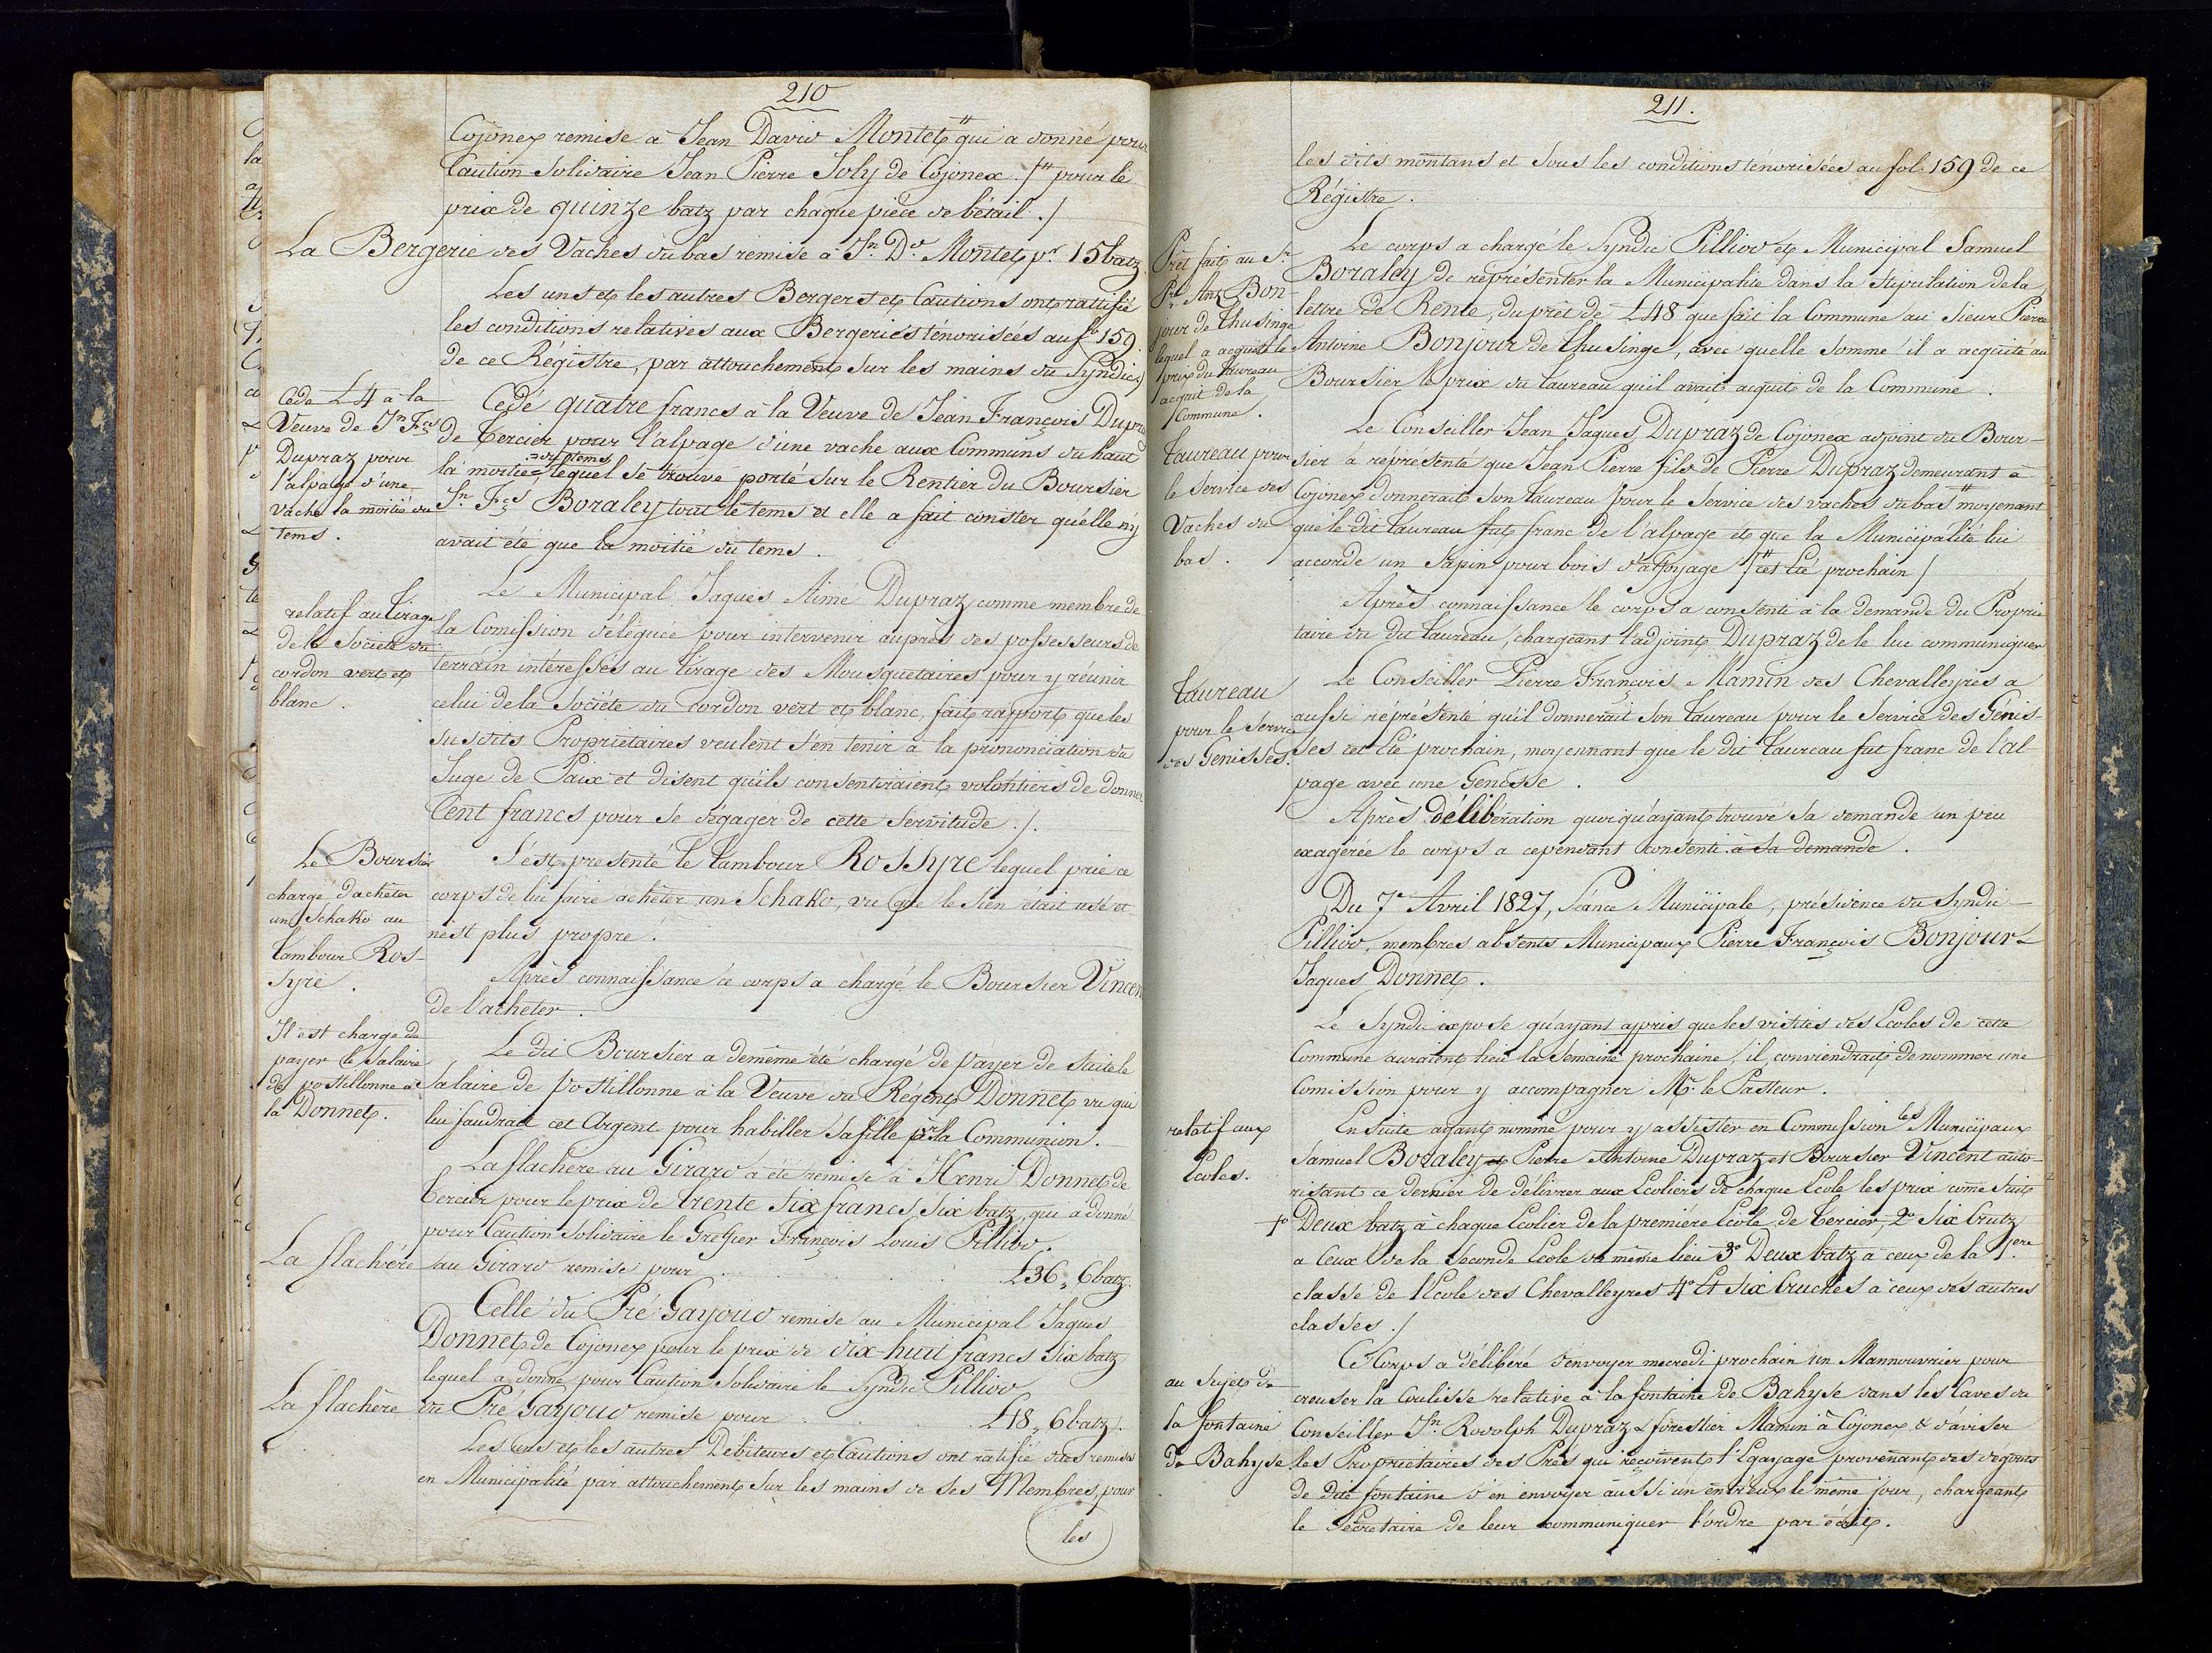 210
Cojonex remise à Jean David Montet # qui a donné pour
Caution Solidaire Jean Pierre Joly de Cojonex. /# pour le
prix de quinze batz par chaque pièce de bétail./
La Bergerie des Vaches du bas remise à Jn. Dd. Montet pr. 15 batz
Les uns et les autres Bergers et Cautions ont rattifié
les conditions relatives aux Bergeries ténorisées au fo 159
de ce Régistre, par attouchement sur les mains du Syndic./
Cédé £4 à la
Veuve de Jn Fçs
Dupraz pour
l'alpage d'une
vache la moitié du
tems.
Cédé quatre francs à la Veuve de Jean François Dupraz
de Tercier pour l'alpage d'une vache aux Communs du haut
la moitié du tems, lequel se trouve porté sur le Rentier du Boursier
Jn. Fçs Boraley tout le tems et elle a fait conster qu'elle n'y
avait été que la moitié du tems.
relatif au tirage
de la Société du
cordon vert et
blanc.
Le Municipal Jaques Aimé Dupraz comme membre de
la Comission déléguée pour intervenir auprès des possesseurs de
terrain intéressés au tirage des Mousquetaires pour y réunir
celui de la Société du cordon vert et blanc, fait rapport que les
susdits Propriétaires veulent s'en tenir à la prononciation du
Juge de Paix et disent qu'ils consentiraient volontiers de donner
Cent francs pour se dégager de cette Servitude./.
Le Boursier
chargé d'achêter
un Schako au
tambour Ros-
syre.
S'est presenté le tambour Rossyre lequel prie ce
corps de lui faire achêter un Schako, vu que le sien était usé et
n'est plus propre.
Après connaissance ce corps a chargé le Boursier Vincent
de l'acheter.
Il est chargé de
payer le Salaire
de postillonne à
la Donnet.
Le dit Boursier a demême été chargé de payer de suite le
Salaire de postillonne à la Veuve du Régent Donnet vu qui
lui faudrait cet Argent pour habiller sa fille pr la Communion.
La flachère au Girard a été remise à Henri Donnet de
Tercier pour le prix de trente six francs six batz, qui a donné
pour Caution Solidaire le Greffier François Louis Pilliod.
La flachère au Girard remise pour . . . £36„ 6 batz.
Celle du Pré Gayoud remise au Municipal Jaques
Donnet de Cojonex pour le prix de dix-huit francs six batz
lequel a donné pour Caution Solidaire le Syndic Pilliod
La flachère du Pré Gayoud remise pour . . . £18„ 6 batz/.
Les uns et les autres Débiteurs et Cautions ont ratifié dites remises
en Municipalité par attouchement sur les mains de ses Membres, pour
les
211.
les dits montans et sous les conditions ténorisées au fol. 159 de ce
Régistre.
Prêt fait au Sr
Pre Ane Bon-
jour de Thusinge
lequel a acquité le
prix du taureau
acquit de la
Commune.
Le corps a chargé le Syndic Pilliod et Municipal Samuel
Boraley de représenter la Municipalité dans la stipulation de la
lettre de Rente, du prêt de £48 que fait la Commune au sieur Pierre
Antoine Bonjour de Thusinge, avec quelle somme il a acquité au
Boursier le prix du taureau qu'il avait acquit de la Commune.
Taureau pour
le Service des
Vaches du
bas.
Le Conseiller Jean Jaques Dupraz de Cojonex adjoint du Bour-
sier à représenté que Jean Pierre fils de Pierre Dupraz demeurant à
Cojonex donnerait son taureau pour le Service des vaches du bas # moyenant
que le dit taureau fut franc de l'alpage et que la Municipalité lui
accorde un Sapin pour bois d'affoyage /# cet Eté prochain/
Après connaissance le corps a consenti à la demande du Proprié
taire du dit taureau, chargeant l'adjoint Dupraz de le lui communiquer
Taureau
pour le Service
des Genisses.
Le Conseiller Pierre François Mamin des Chevalleyres a
aussi réprésenté qu'il donnerait son taureau pour le Service des Génis-
ses cet Eté prochain, moyennant que le dit taureau fut franc de l'al
page avec une Genisse.
Après délibération quoiqu'ayant trouvé sa demande un peu
exagérée le corps a cependant consenti à sa demande.
Du 7e Avril 1827, Séance Municipale, présidence du Syndic
Pilliod, membres absents Municipaux Pierre François Bonjour &
Jaques Donnet.
Le Syndic expose qu'ayant appris que les visites des Ecoles de cette
Commune auraient lieu la Semaine prochaine, il conviendrait de nommer une
Comission pour y accompagner Mr. le Pasteur.
relatif aux
Ecoles.
Ensuite ayant nommé pour y assister en Commission les Municipaux
Samuel Boraley et Pierre Antoine Dupraz et Boursier Vincent auto-
risant ce dernier de délivrer aux Ecoliers de chaque Ecole les prix come suit
1o Deux batz à chaque Ecolier de la première Ecole de Tercier, 2o Six Crutz
a ceux de la seconde Ecole du même lieu 3o Deux batz à ceux de la 1ere
classe de l'Ecole des Chevalleyres 4o Et six Cruches à ceux des autres
classes./
au sujet de
la fontaine
de Bahyse
Ce Corps a délibéré d'envoyer mecredi prochain un Mannouvrier pour
creuser la Coulisse relative à la fontaine de Bahyse dans les Caves du
Conseiller Jn. Rodolph Dupraz & forestier Mamin à Cojonex & d'aviser
les Propriétaires des Prés qui reçoivent l'Egayage provenant des degouts
de dite fontaine d'en envoyer aussi un entr'eux le même jour, chargeant
le Secretaire de leur communiquer l'ordre par écrit.